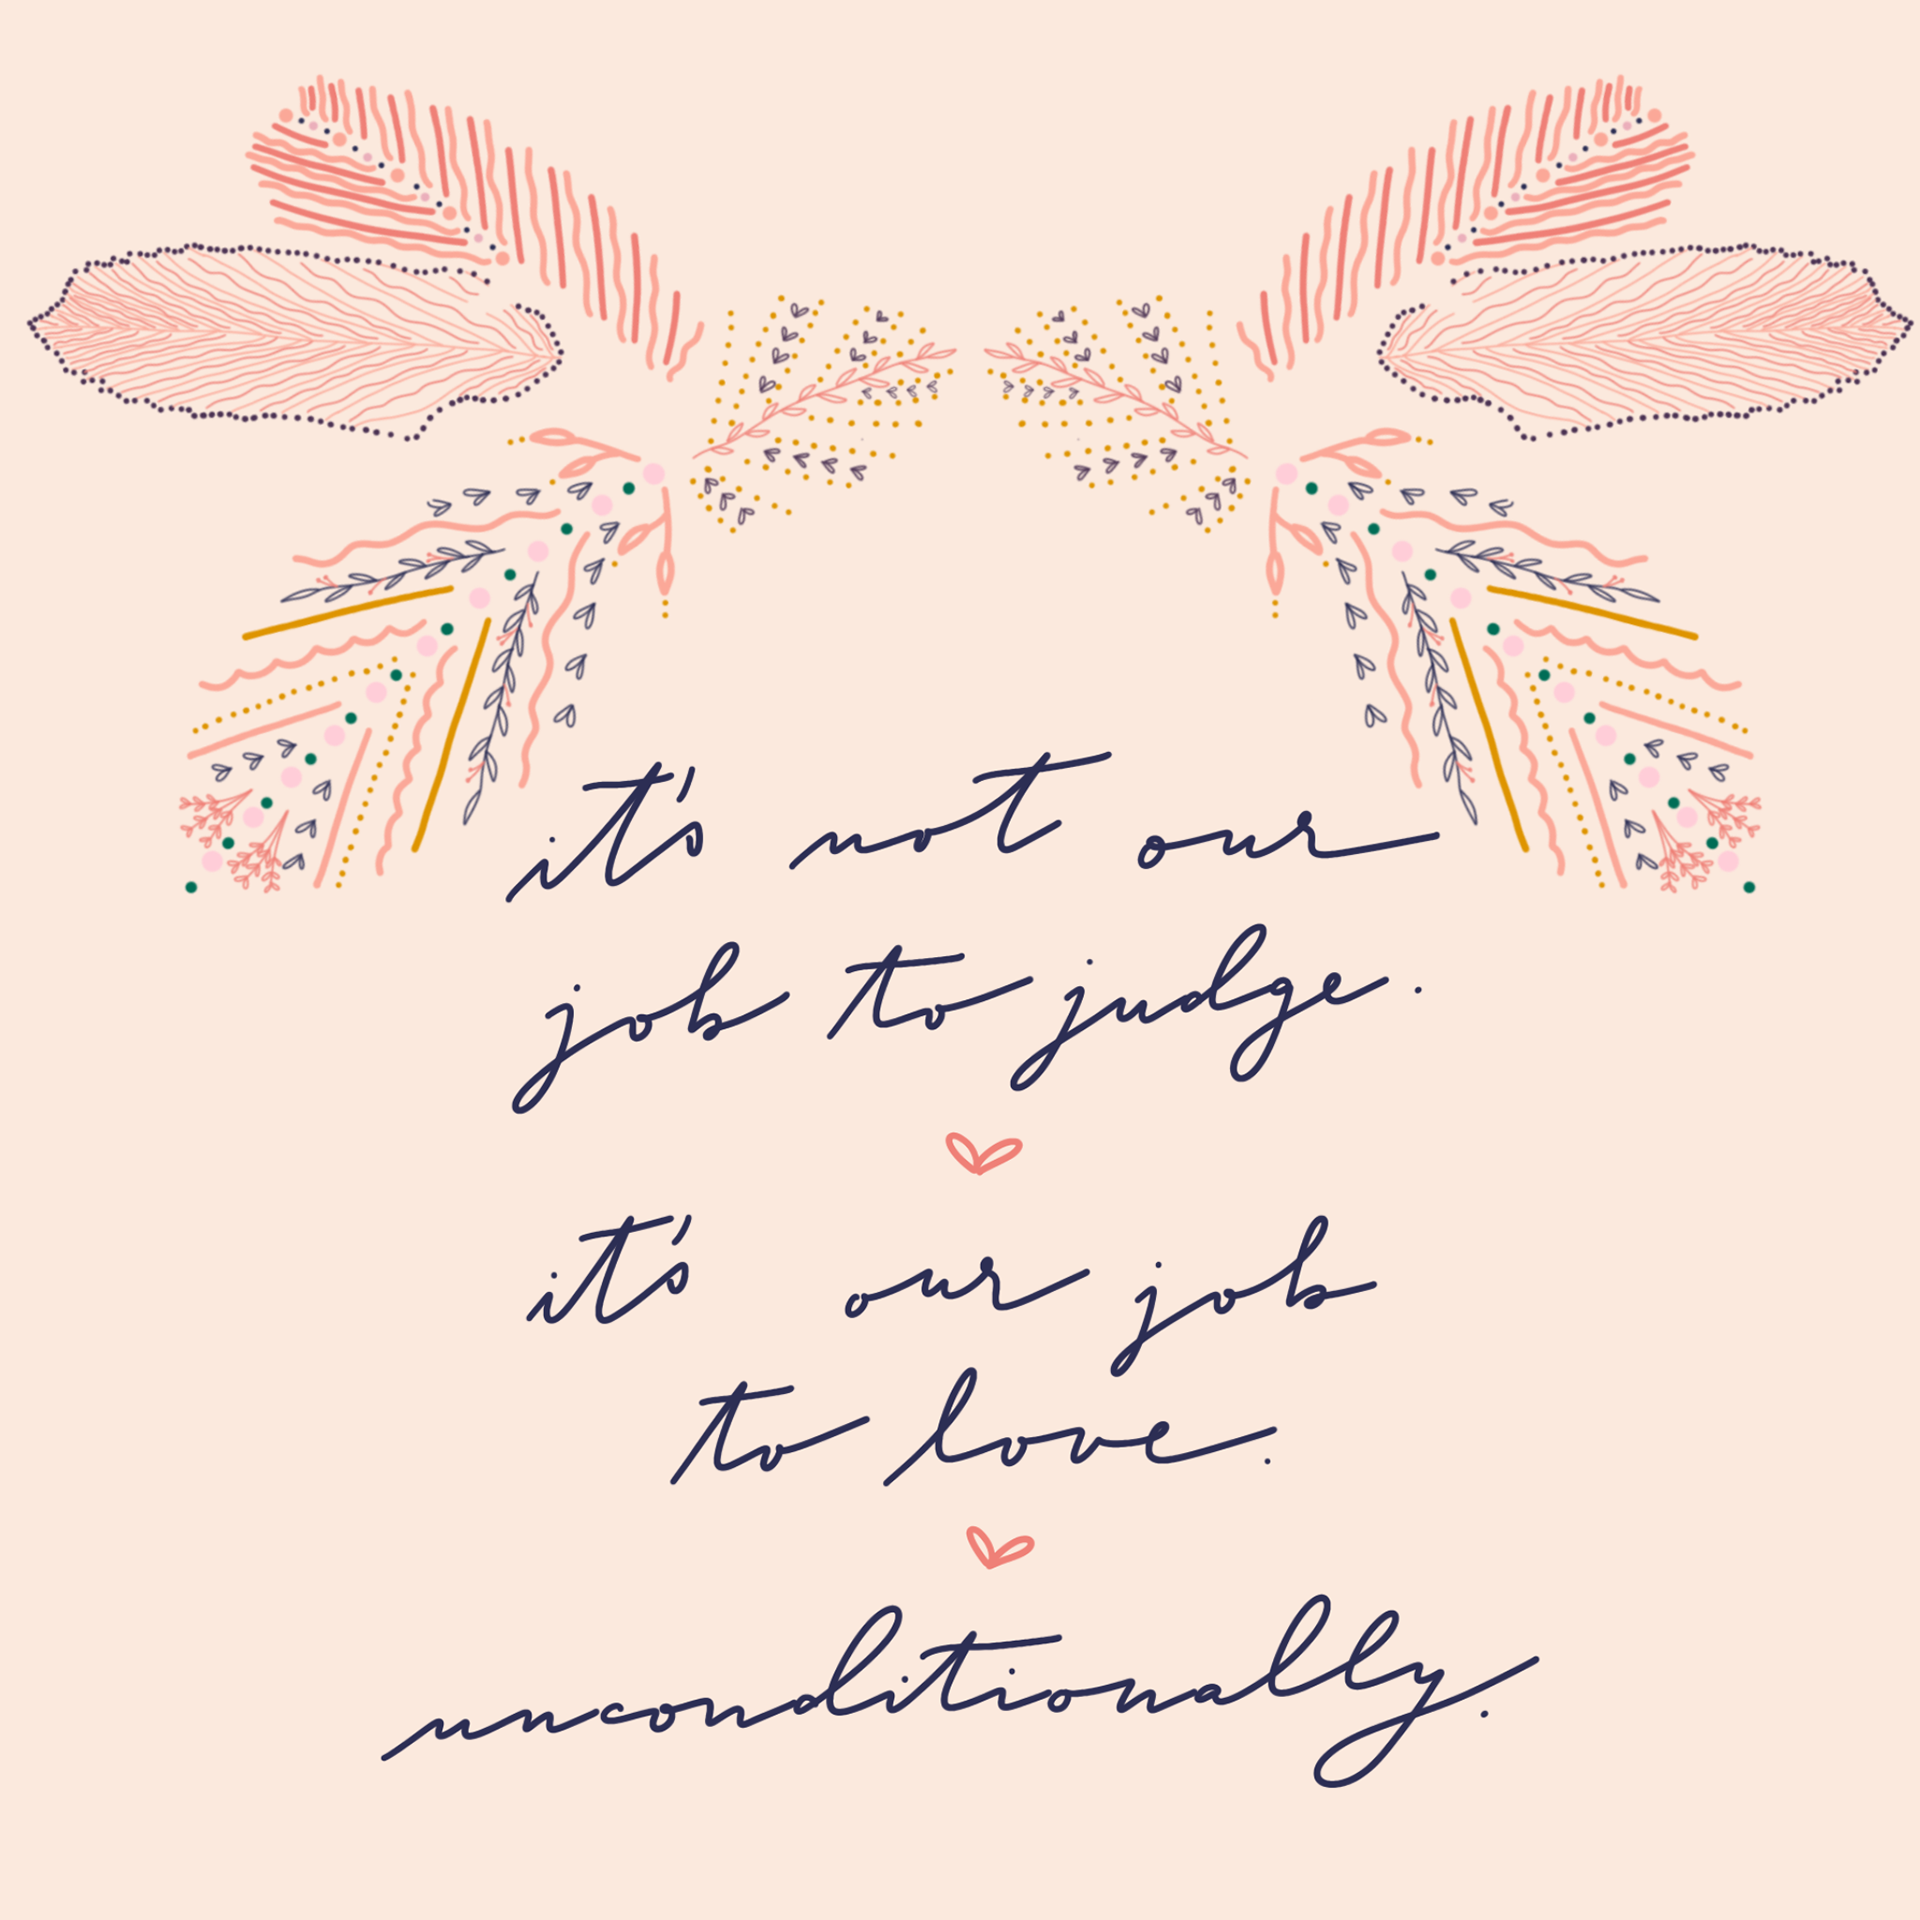 it's not our
job to judge.
it's our job
to love.
unconditionally.